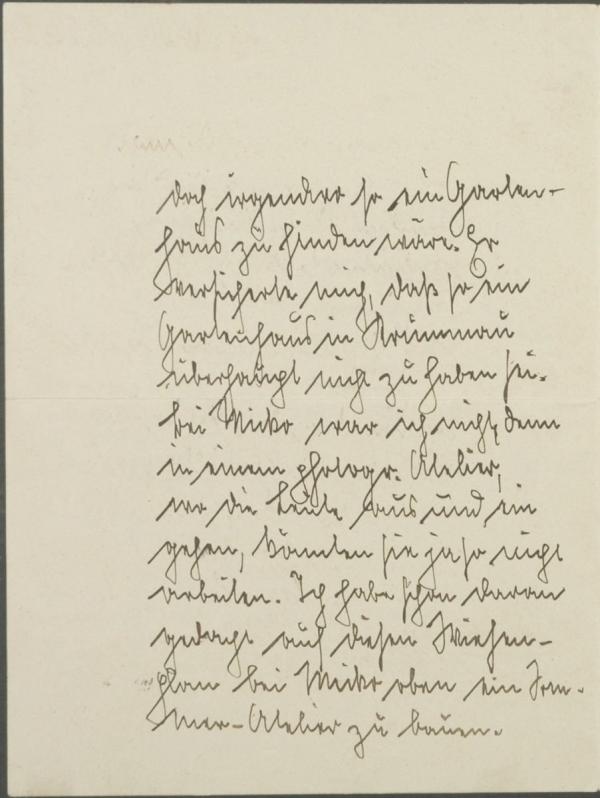 doch irgendwo so ein Garten-
haus zu finden wäre. Er
versicherte mich, daß so ein
Gartenhaus in Krummau
überhaupt nicht zu haben sei.
bei Micko war ich nicht, denn
in einem photogr. Atelier,
wo die Leute aus und ein
gehen, könnten sie ja so nicht
arbeiten. Ich habe schon daran
gedacht auf diesen Wiesen-
plan bei Micko oben ein Som-
mer-Atelier zu bauen.